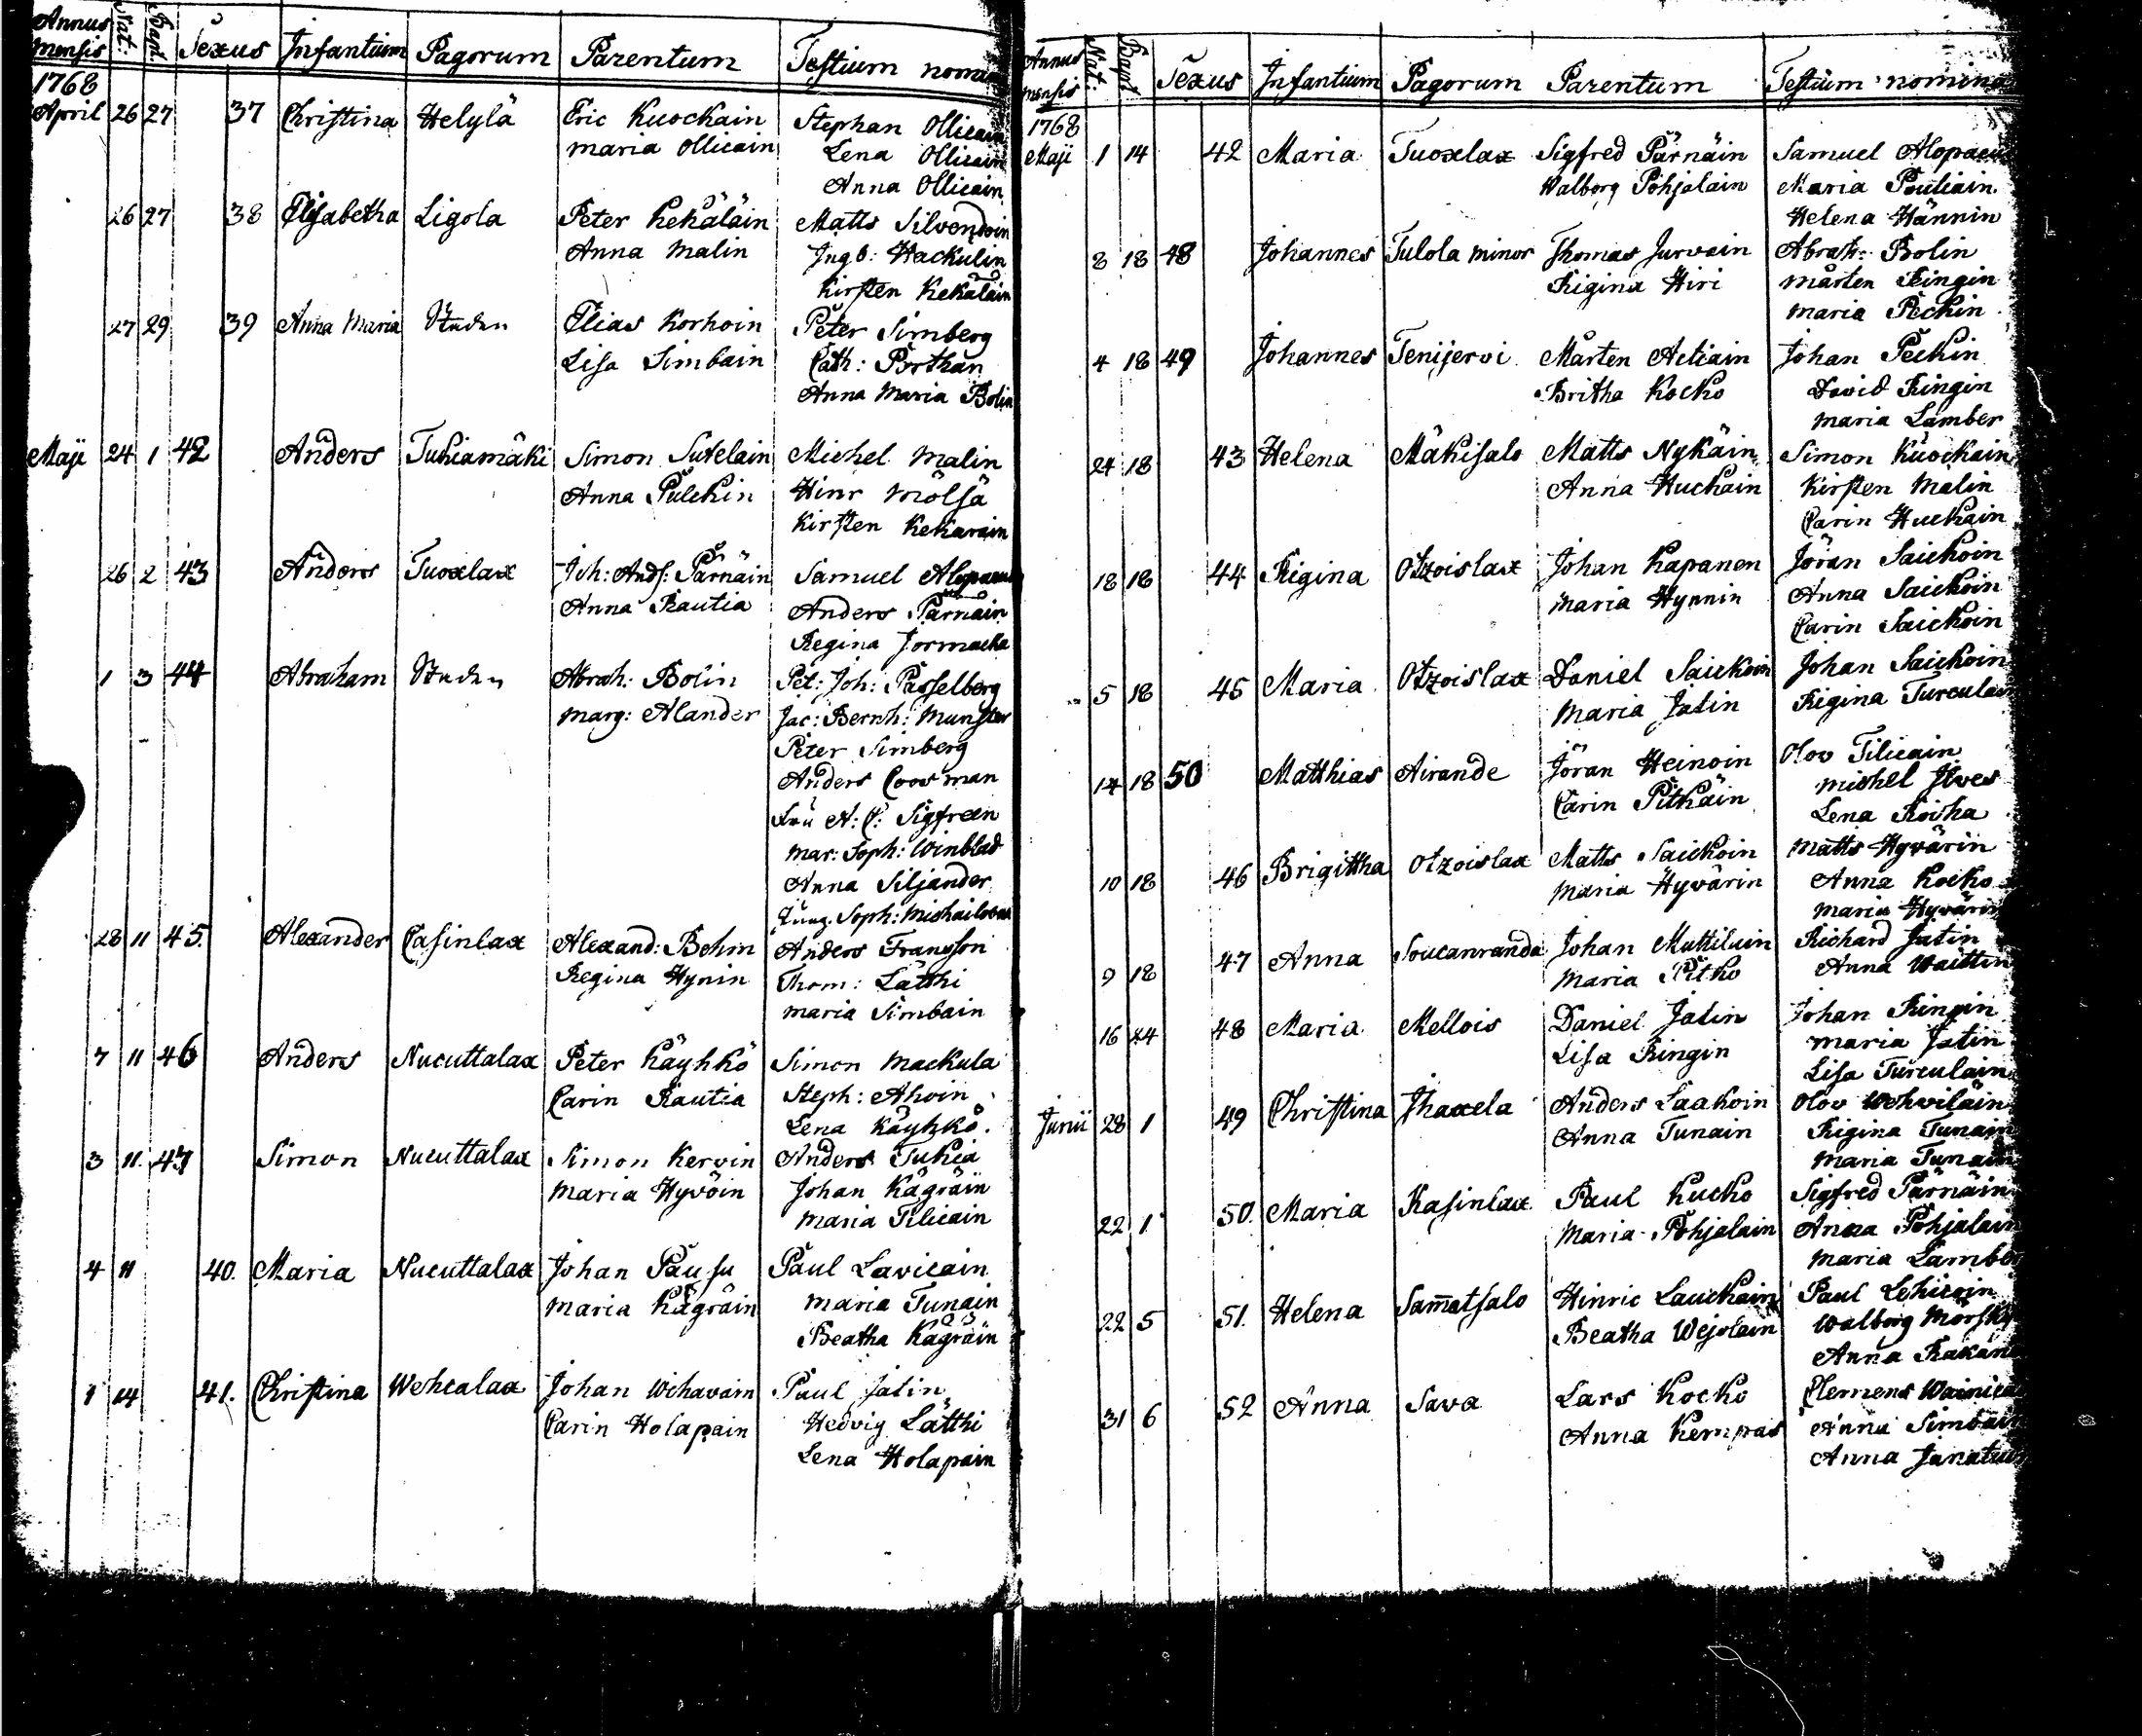 Annus mensis Nat: Bapt Sexus Infantium Pagorum Parentum Testium nomina
1768
April 26 27 37 Christina Helylä Eric Kuockain Stephan Ollicain
Maria Ollicain Lena Ollicain
Anna Ollicain
26 27 38 Elisabetha Ligola Peter Kekäläin Matts Silvendoin
Anna Malin Ingb: Hackulin
Kirsten Kekäläin
27 29 39 Anna Maria Staden Elias Korhoin Peter Simberg
Lisa Simbain Cath: Porthan
Anna Maria Bolin
Maji 24 1 42 Anders Tuhiamäki Simon Sutelain Michel Malin
Anna Pulckin Hinr Mölsä
Kirsten Kekarain
26 2 43 Anders Tuoxlax Joh: Andſ: Pärnäin Samuel Alopaeus
Anna Rautia Anders Pärnäin
Regina Jormacka
1 3 44 Abraham Staden Abrah: Bolin Pet: Joh: Passelberg
Marg: Alander Jac: Bernh: Munster
Peter Simberg
Anders Coosman
Fru A: C: Sigfreen
Mar: Soph: Winblad
Anna Siljander
Jung. Soph: Michailovna
28 11 45 Alexander Casinlax Alexand: Behm Anders Fransson
Regina Hynin Thom: Lätthi
Maria Simbain
7 11 46 Anders Nucuttalax Peter Käyhkö Simon Mackula
Carin Rautia Steph: Ahoin
Lena Käyhkö.
3 11. 47 Simon Nucuttalax Simon Kervin Anders Tukia
Maria Hyvöin Johan Kägräin
Maria Tilicain
4 11 40. Maria Nucuttalax Johan Pausu Paul Lavicain
Maria Kägräin Maria Tunain
Beatha Kägräin
1 14 41. Christina Wehcalax Johan Wihavain Paul Jatin
Carin Holapain Hedvig Lätthi
Lena Holapain
Annus mensis Nat: Bapt Sexus Infantium Pagorum Parentum Testium nomina
1768
Maji 1 14 42 Maria Tuoxlax Sigfred Pärnäin Samuel Alopaeus
Walborg Pohjalain Maria Pouliain
Helena Hännin
8 18 48 Johannes Tulola minor Thomas Jurvain Abrah: Bolin
Rigina Hiri Mårten Ringin
Maria Peckin
4 18 49 Johannes Tenijervi Mårten Actiain Johan Peckin
Britha Kocko David Ringin
Maria Lamber
24 18 43 Helena Mäkisalo Matts Nykäin Simon Kuockain
Anna Huckain Kirsten Malin
Carin Huckain
18 18 44 Rigina Otzoislax Johan Kapanen Jöran Saickoin
Maria Hynnin Anna Saickoin
Carin Saickoin
5 18 45 Maria Otzoislax Daniel Saickoin Johan Saickoin
Maria Jatin Rigina Turculain
14 18 50 Matthias Airande Jöran Heinoin Olov Tilicain
Carin Pitkäin Michel Ilves
Lena Roiha
10 18 46 Brigittha Otzoislax Matts Saickoin Matts Hyvärin
Maria Hyvärin Anna Kocko
Maria Hyvärin
9 18 47 Anna Soucanranda Johan Muttilain Richard Jatin
Maria Pitko Anna Waittin
16 24 48 Maria Mellois Daniel Jatin Johan Ringin
Lisa Ringin Maria Jatin
Lisa Turculain
Junii 28 1 49 Christina Ihaxela Anders Laakoin Olov Wehviläin
Anna Tunain Rigina Tunain
Maria Tunain
22 1 50. Maria Kasinlax Paul Kucko Sigfred Pärnäin
Maria Pohjalain Anna Pohjalain
Maria Lamber
22 5 51. Helena Sam̄atsalo Hinric Lauckain Paul Lehicoin
Beatha Wejolain Walborg Mörsky
Anna Rakain
31 6 52 Anna Sava Lars Kocko Clemens Wainica
Anna Kempas Anna Simbain
Anna Janatuin